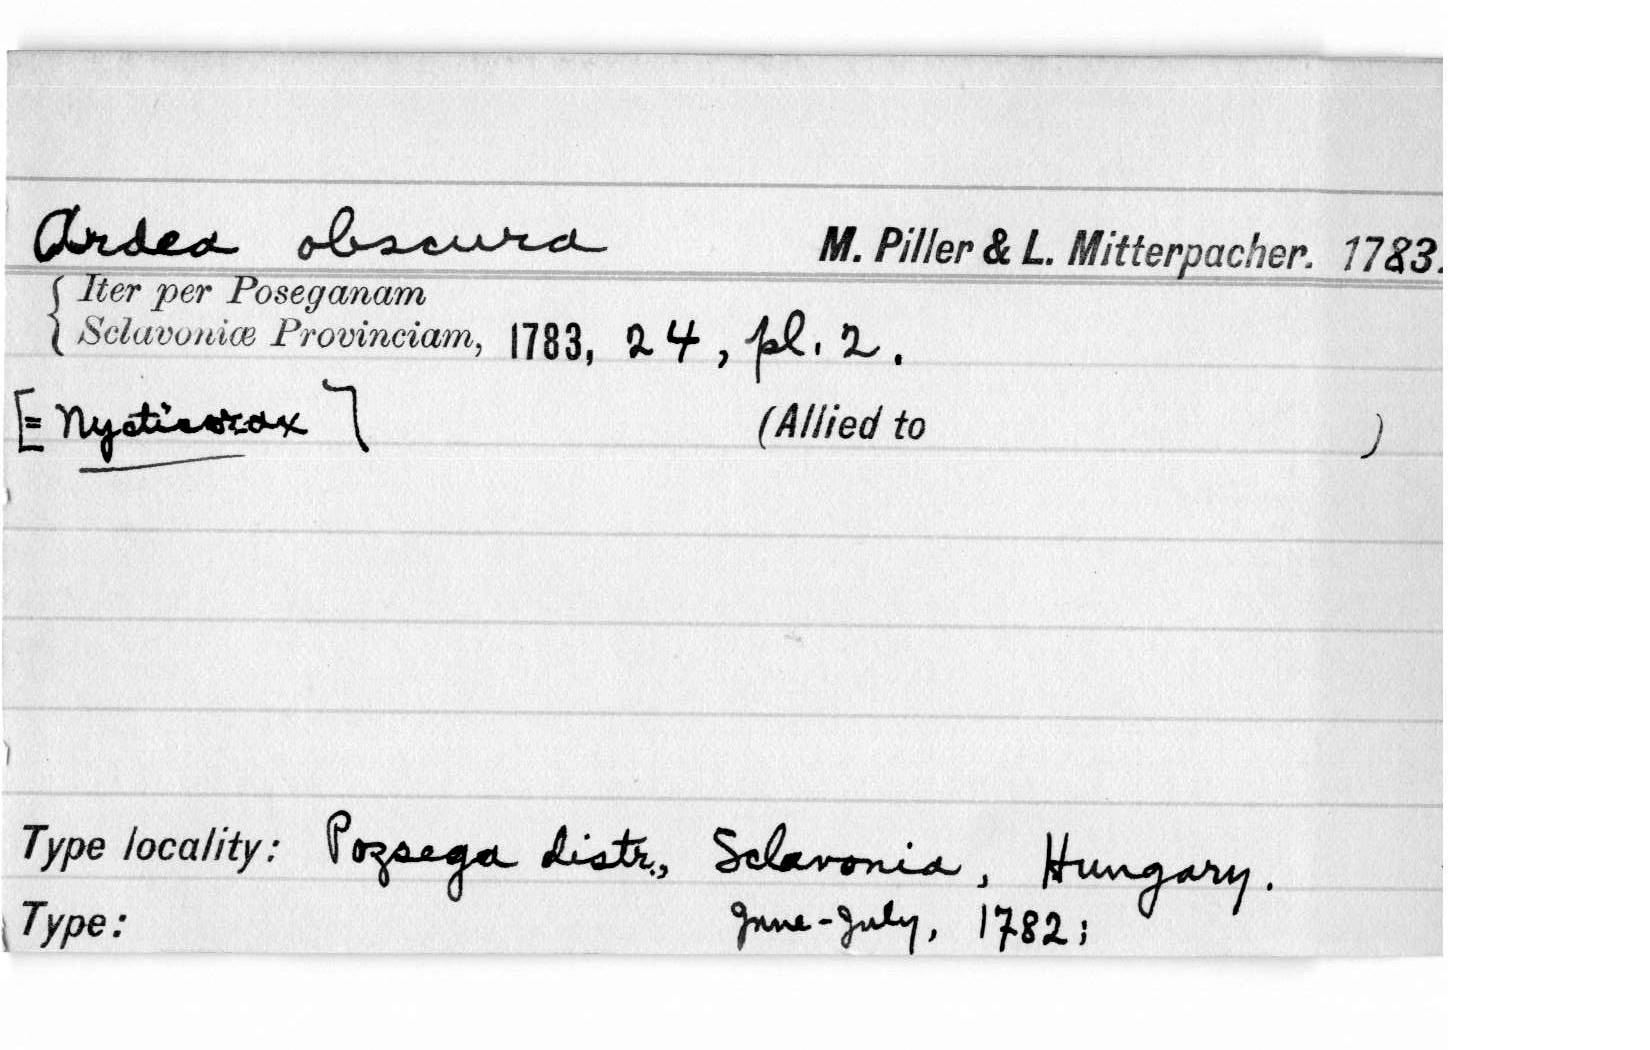 Ardea obscura M. Piller & L. Mitterpacher. 1783.
{ Iter per Poseganam
Sclavoniæ Provinciam, 1783, 24, pl. 2.
[= Nycticorax] (Allied to )
Type locality: Pozsega distr., Sclavonia, Hungary.
Type: June-July, 1782;